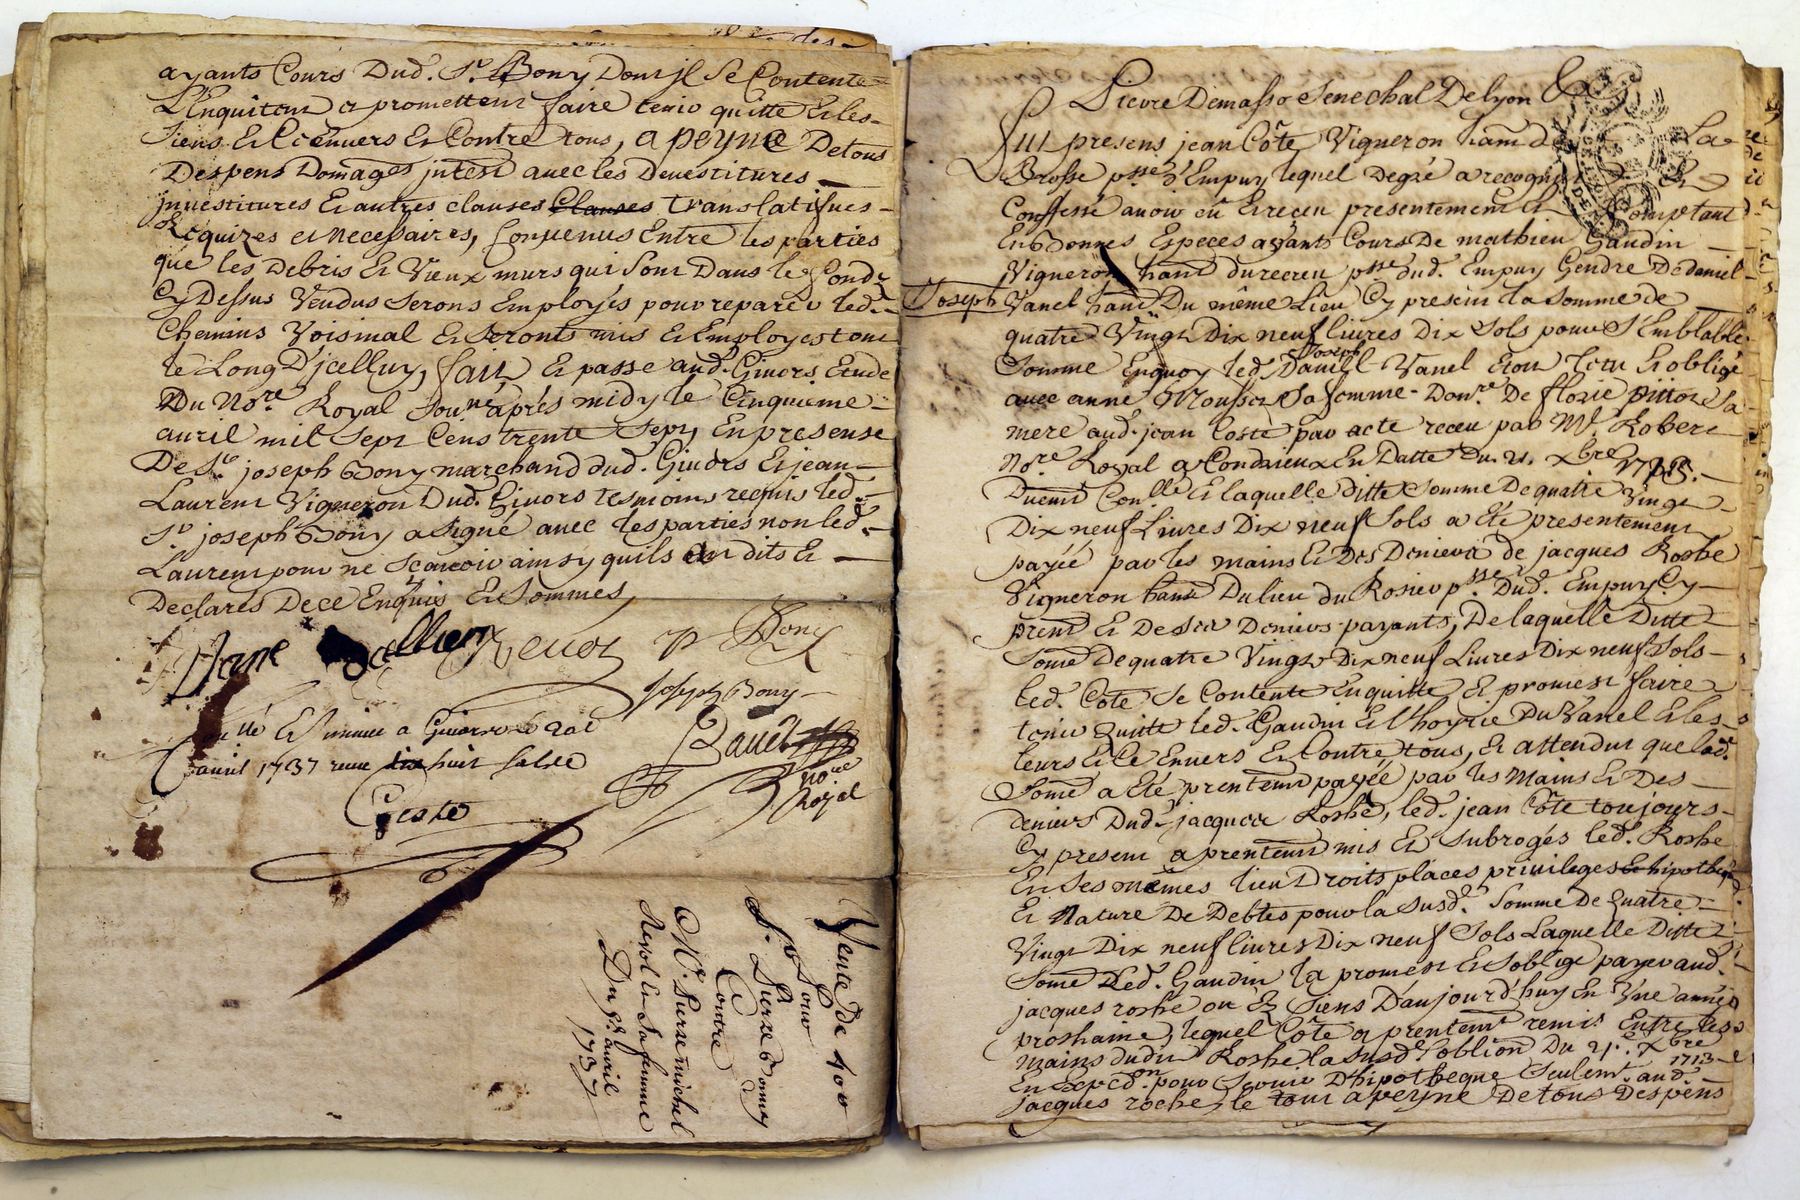 ayants Cours Dud. Sr. Bony Dont jl Se Contente
L'Enquitant et promettent faire tenir quitte Et les
Siens Et Ce Envers Et Contre tous, a peyne De tous
Despens Domages jnterst avec les Devestitures
jnvestitures Et autres clauses Clauses translatifves
Requizes et Necessaires, Convenus Entre les parties
que les Debris Et Vieux murs qui Sont Dans le fond
Cy Dessus Vendus Seronts Employés pour reparer led.
Chemins Voisinal Et Seronts mis Et Employes tout
le Long D'jcelluy, fait Et passé aud. Givors Etude
Du Nore. Royal Sou.né après midy le Cinquieme
avril mil Sept Cens trente Sept, En presense
De Sr. joseph Bony marchand dud. Givors Et jean
Laurent Vigneron Dud. Givors tesmoins requis led.
Sr. joseph Bony a Signé avec les parties non led.
Laurent pour ne Scavoir ainsy quils ont dits Et
Declarés De ce Enquis Et Sommes,
Revol P Bony
joseph Bony
Et Givors
avril 1737 receu huit Sols
Coste
Nore.
Royal
Vente De 400
Pour
Sr. Pierre Bony
Contre
Mr. Pierre michel
Revol Et Sa femme
Du 5e. avril
1737
Pierre Demasso Senechal De lyon &
Fut presens jean Côte Vigneron hant de La
Brosse psse d'Empuy lequel Degré a recognu Et
Confessé avoir eû Et receu presentement Et Comptant
En Bonnes Especes ayants Cours De mathieu Gaudin
Vigneron hant du recreu psse dud. Empuy Gendre De daniel
Joseph Vanel hant Du même Lieu Cy present la Somme de
quatre Vingt Dix neuf livres Dix Sols pour S'Emblable
Joseph
Somme Enquoy led. Daniel Vanel Etoit tenu Et obligé
avec anne Mousset Sa femme Donre. De florie pitiot Sa
mere aud. jean Coste par acte receu par Me. Robert
Nore. Royal a Condrieux En Datte du 21. xbre 1713.
Duemt Conllé Et laquelle ditte Somme De quatre Vingt
Dix neuf Livres Dix neuf Sols a Eté presentement
payéé par les mains Et Des Deniers de jacques Roshe
Vigneron hant Du lieu du Rosier psse Dud. Empuy Cy
prent Et De Ses Deniers payants, De laquelle Ditte
Somé De quatre Vingts Dix neuf Livres Dix neuf Sols
led. Côte Se Contente Enquitte, Et promest faire
tenir Quitte led. Gaudin Et l'hoyrie Du Vanel Et les
leurs Et Ce Envers Et Contre tous, Et attendut que lad.
Somé a Eté prentemt payéé par les Mains Et Des
deniers Dud. jacques Roshe, led. jean Côte toujours
Cy present a prentemt mis Et Subrogés led. Roshe
En Ses mêmes lieu Droits places privileges Et hipotheques
Et Nature De Debtes pour la Susd. Somme De Quatre
Vingt Dix neuf livres Dix neuf Sols Laquelle Ditte
Somé Led. Gaudin la promest Et S'oblige payer aud.
jacques roshe ou Et Siens D'aujourd'huy En Vne année
proshaine, lequel Côte a prentemt remis Entre les
mains dudit Roshe la Susd. oblion Du 21. xbre
1713
En Expedon. pour Servir D'hipotheque Seulemt. aud.
jacques roche, le tout a peyne De tous Despens